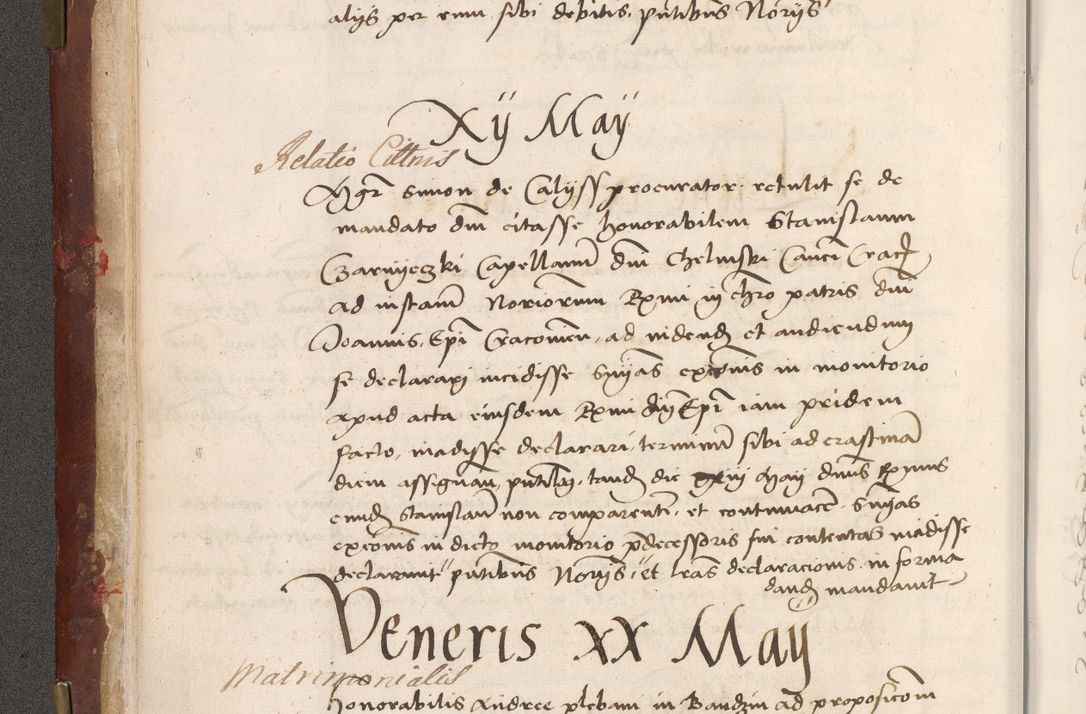 alijs per eum sibi debitis, pntibus Norijs
Xij Maij
Relatio Cittnis
Mgr Simon de Calyss procurator retulit se de
mandato dm citasse honorabilem Stanislaum
Czarnyeczki Capellanum dm Chelmski Canci Crac
ad instam Noriorum Rxmi in chro patris dm
Joannis, Epi Cracovien, ad videnđ et audiendum
se declarari incidisse snyas excois in monitorio
apud acta eiusdem Rxmi dny Epi iam pridem
facto, incidisse declarari, terminum sibi ad crastinam
diem assignam, tandẽ die xiij Maij dnus Rxmus
eundẽ Stanislaum non comparentẽ, et contumacẽ snyas
excois in dicto monitorio pdecessoris sui contentas incidisse
declaravit pntibus Norijs, et tras declaracionis in forma
dandẽ mandavit
Veneris XX Maij
Matrimonialis
Honorabilis Andree plebani in Bandzin ad proposicom